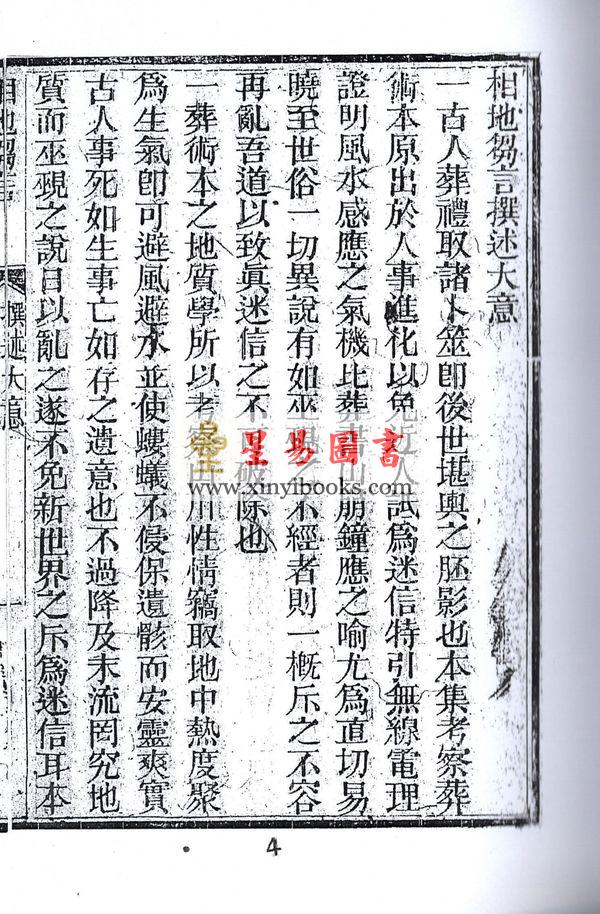 相地芻言撰述大意
一古人葬禮取諸卜筮卽後世堪輿之胚影也本集考察葬
術本原出於人事進化以免近人試爲迷信特引無線電理
證明風水感應之氣機比葬書山崩鐘應之喻尤爲直切易
曉至世俗一切異說有如巫覡之不經者則一概斥之不容
再亂吾道以致眞迷信之不可破除也
一葬術本之地質學所以考察山川性情竊取地中熱度聚
爲生氣卽可避風避水並使螻蟻不侵保遺骸而安靈爽實
古人事死如生事亡如存之遺意也不過降及末流罔究地
質而巫覡之說日以亂之遂不免新世界之斥爲迷信耳本
相地芻言
撰述大意
星易圖書
www.xinyibooks.com
4